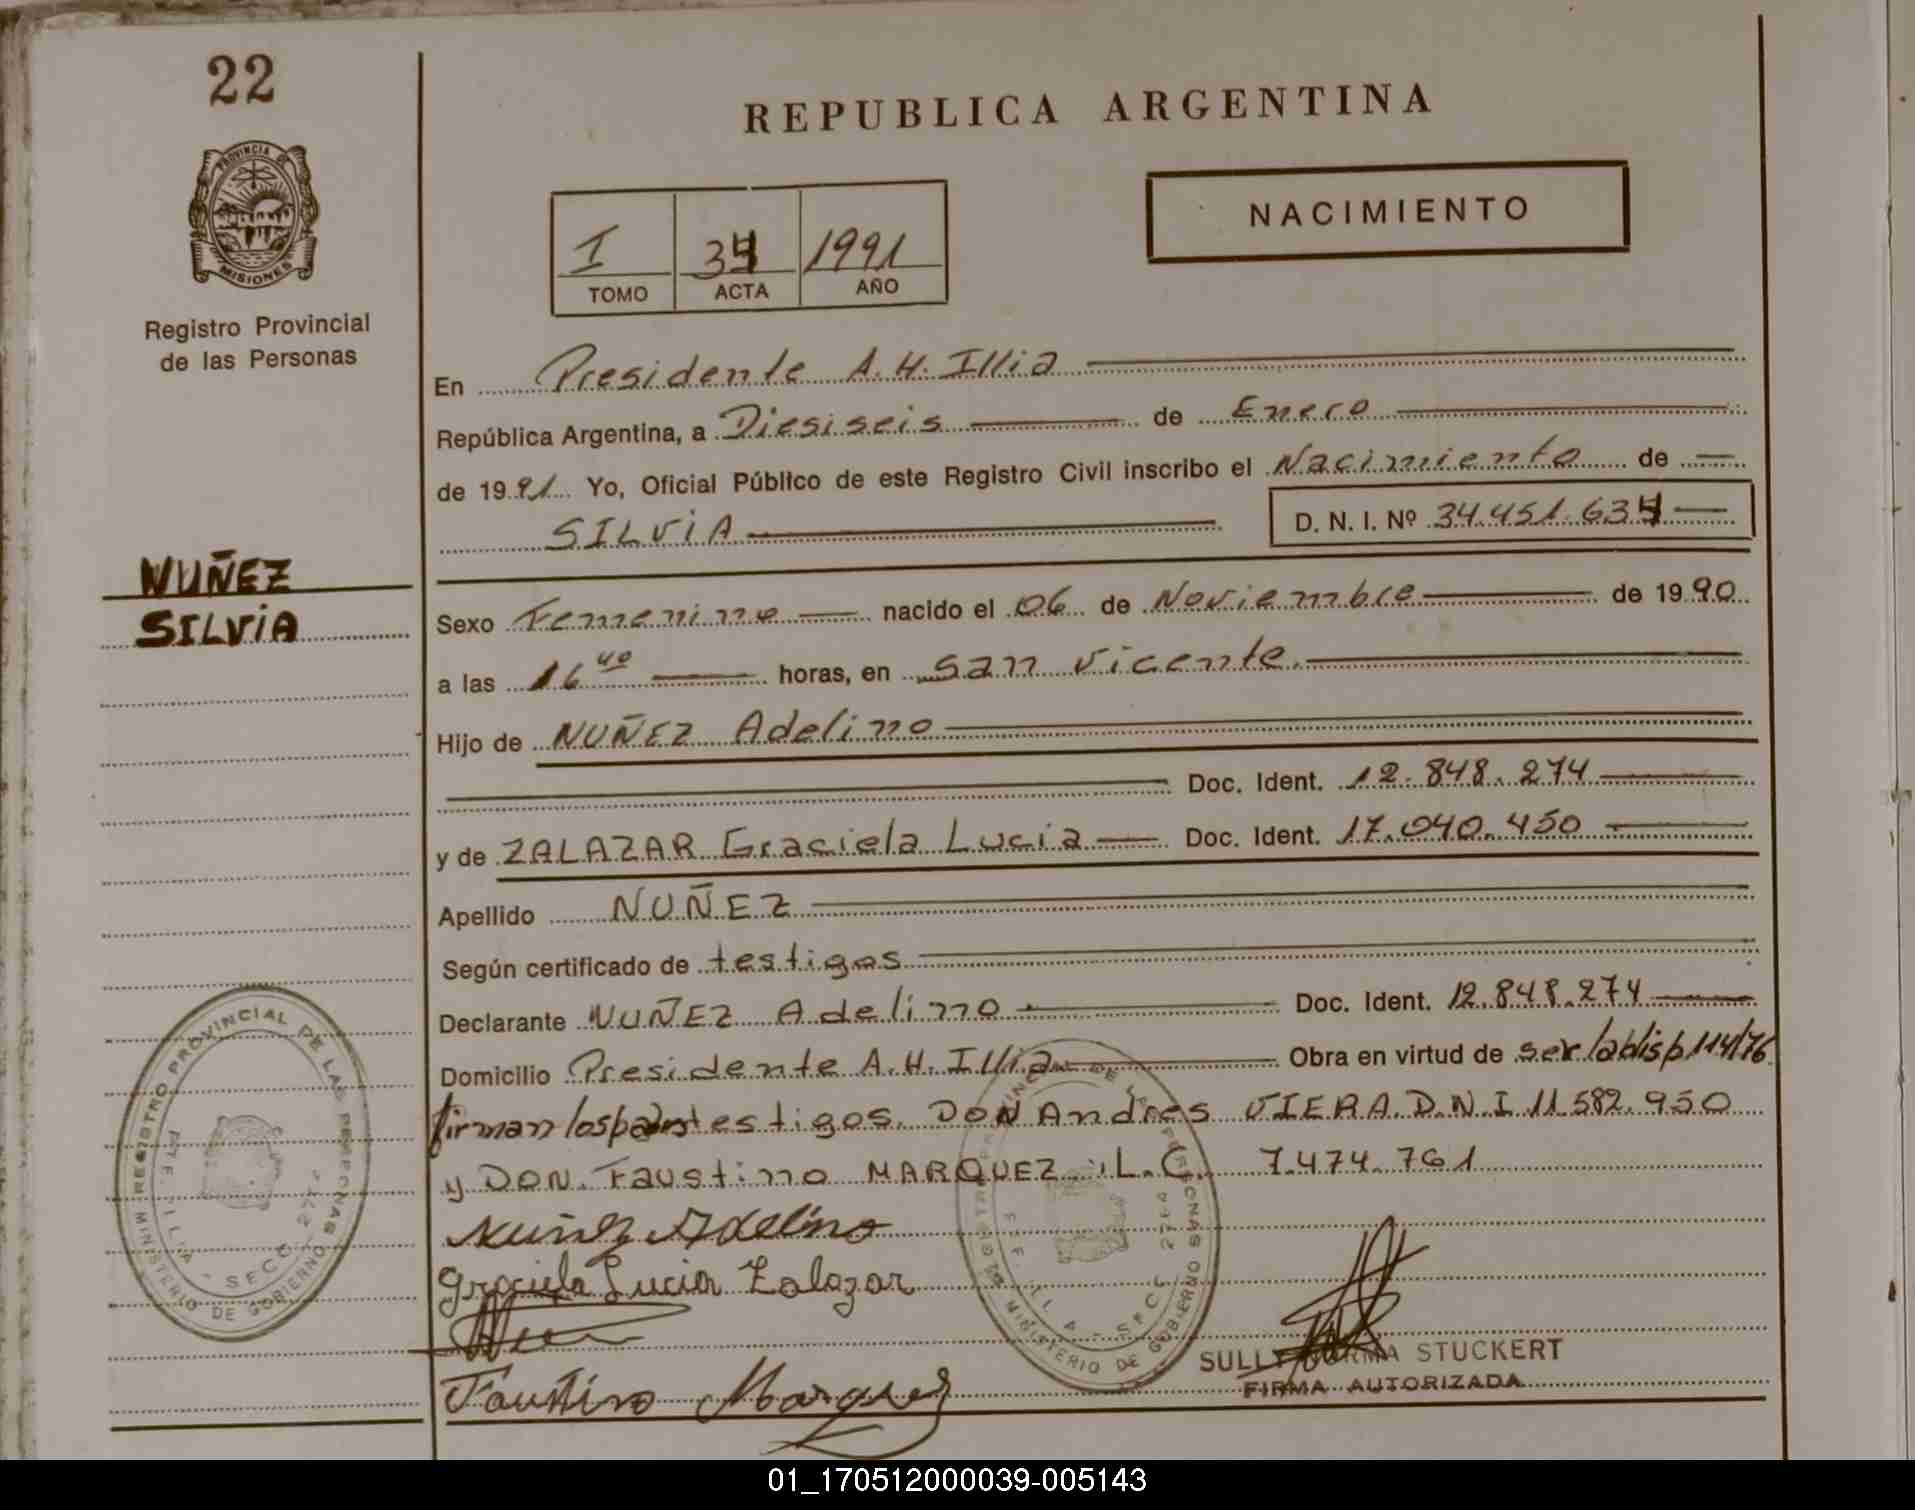 22
REPUBLICA ARGENTINA
PROVINCIA DE MISIONES
Registro Provincial
de las Personas
I 34 1991
TOMO ACTA AÑO
NACIMIENTO
En Presidente A. H. Illia
República Argentina, a Diesiseis de Enero
de 1991 Yo, Oficial Público de este Registro Civil inscribo el Nacimiento de
SILVIA D. N. I. Nº 34.451.634
NUÑEZ
SILVIA
Sexo Femenino nacido el 06 de Noviembre de 1990
a las 16 40 horas, en San Vicente.
Hijo de NUÑEZ Adelino
Doc. Ident. 12.848.274
y de ZALAZAR Graciela Lucia Doc. Ident. 17.040.450
Apellido NUÑEZ
Según certificado de testigos
Declarante NUÑEZ Adelino Doc. Ident. 12.848.274
Domicilio Presidente A. H. Illia Obra en virtud de ser la disp 114/76
firman los padres testigos. DON Andres VIERA. D.N.I 11.582.950
y DON. Faustino MARQUEZ L.C. 7.474.761
Nuñez Adelino
Graciela Lucia Zalazar
Faustino Marquez
SULLY NORMA STUCKERT
FIRMA AUTORIZADA
REGISTRO PROVINCIAL DE LAS PERSONAS
MINISTERIO DE GOBIERNO
PTE. ILLIA - SECC. 2744
REGISTRO PROVINCIAL DE LAS PERSONAS
MINISTERIO DE GOBIERNO
01_170512000039-005143